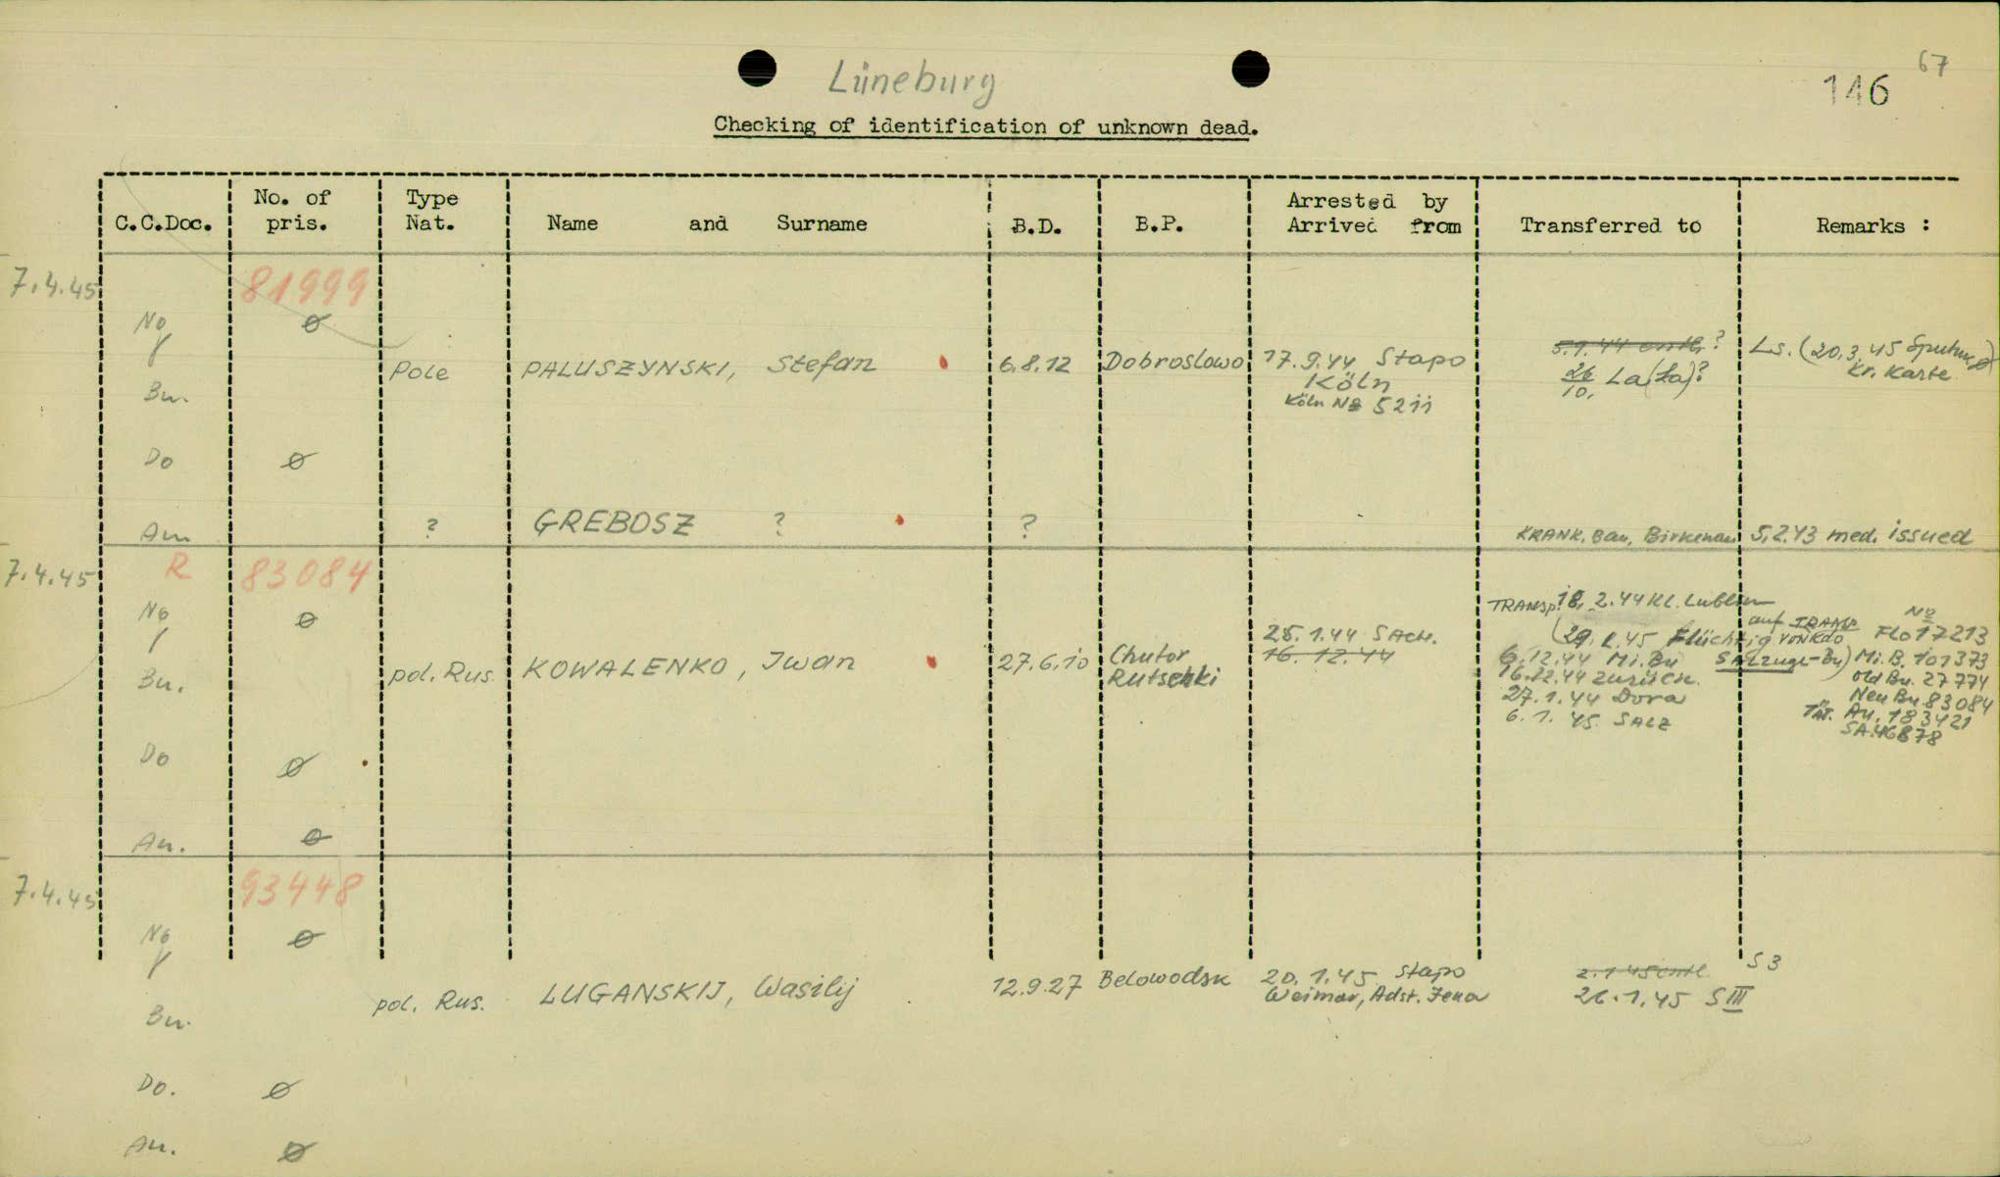 67
Lüneburg
146
Checking of identification of unknown dead.
C.C.Doc. No. of pris. Type Nat. Name and Surname B.D. B.P. Arrested by Arrived from Transferred to Remarks :
7.4.45 81999
No Ø
Pole PALUSZYNSKI, Stefan 6.8.12 Dobroslowo 17.9.44 Stapo 5.1.44 entl. ? Ls. (20.3.45
Köln 26/10. La(La)? Kr. Karte
Bu. Köln № 5211
Do Ø
Au ? GREBOSZ ? ? KRANK. Bau, Birkenau 5.2.43 med. issued
7.4.45 R 83084
No Ø
Transp. 18.2.44 Kl. Lublin
auf TRANSP. № Flo 17213
28.1.44 SACH. Flüchtig von Kdo
pol. Rus. KOWALENKO, Iwan 27.6.10 Chutor 16.12.44 6.12.44 Mi.Bu Mi.B. 101373
Bu. Rutschki 16.12.44 zurück. old Bu. 27774
27.1.44 Dora Neu Bu 83084
6.1.45 SALZ Tät. Au. 183421
SA.46878
Do Ø
Au. Ø
7.4.45 93448
No Ø
pol. Rus. LUGANSKIJ, Wasilij 12.9.27 Belowodsk 20.1.45 Stapo 2.1.45 entl. S3
Bu. Weimar, Adst. Jena 26.1.45 SIII
Do. Ø
Au. Ø